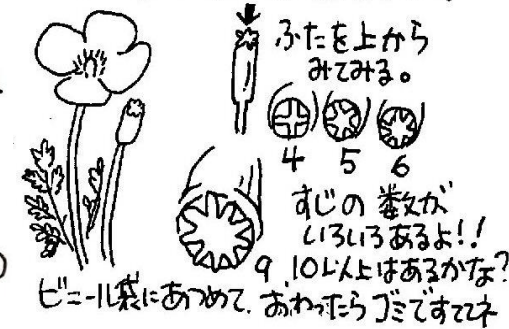 ふたを上から
みてみる。
4 5 6
すじの数が
いろいろあるよ!!
9 10以上はあるかな?
ビニール袋にあつめて、おわったらゴミですててネ